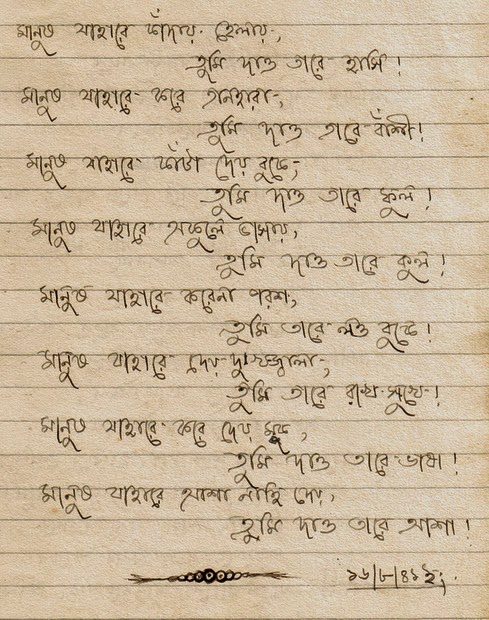 মানুষ যাহারে কাঁদায় হেলায়,
তুমি দাও তারে হাসি!
মানুষ যাহারে করে তানহারা,
তুমি দাও তারে বাঁশী!
মানুষ যাহারে কাঁটা দেয় বুকে,
তুমি দাও তারে ফুল!
মানুষ যাহারে অকূলে ভাসায়,
তুমি দাও তারে কূল!
মানুষ যাহারে করেনা পরশ,
তুমি তারে লও বুকে!
মানুষ যাহারে দেয় দুঃখজ্বালা,
তুমি তারে রাখ সুখে!
মানুষ যাহারে করে দেয় মূক,
তুমি দাও তারে ভাষা!
মানুষ যাহারে আশা নাহি দেয়,
তুমি দাও তারে আশা!
১৬/৮/৪১ইং